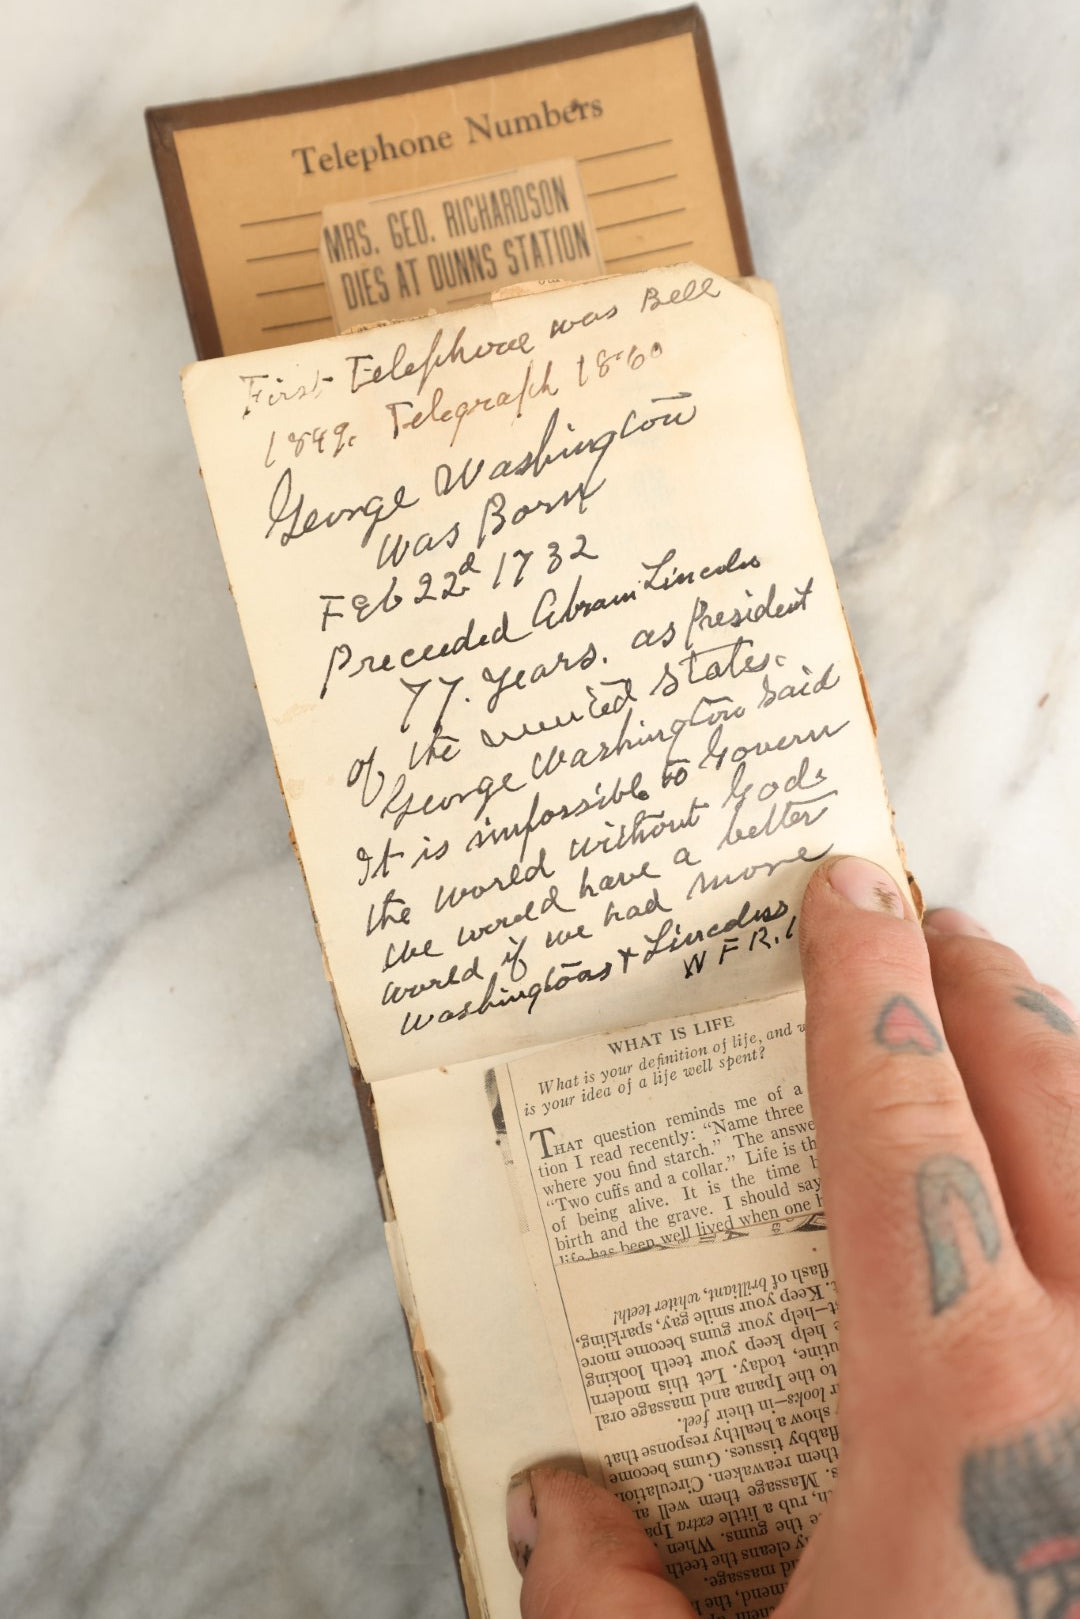 Telephone Numbers
MRS. GEO. RICHARDSON
DIES AT DUNNS STATION
First Telephone was Bell
1849. Telegraph 1860
George Washington
was Born
Feb 22d 1732
Preceeded Abram Lincoln
77. years. as President
of the united States.
George Washington Said
It is impossible to Govern
the world without God.
the world have a better
world if we had more
Washingtons + Lincolns
W F R.
WHAT IS LIFE
What is your definition of life, and
is your idea of a life well spent?
THAT question reminds me of a
tion I read recently: “Name three
where you find starch.” The answe
“Two cuffs and a collar.” Life is th
of being alive. It is the time
birth and the grave. I should say
life has been well lived when one
mend, the
and massage.
cleans the teeth
the gums. When
rub a little extra Ipa
s. Massage them well
them reawaken. Circulation
flabby tissues. Gums become
show a healthy response that
looks—in their feel.
to the Ipana and massage oral
utine, today. Let this modern
help keep your teeth looking
st—help your gums become more
t. Keep your smile gay, sparkling,
flash of brilliant, whiter teeth!